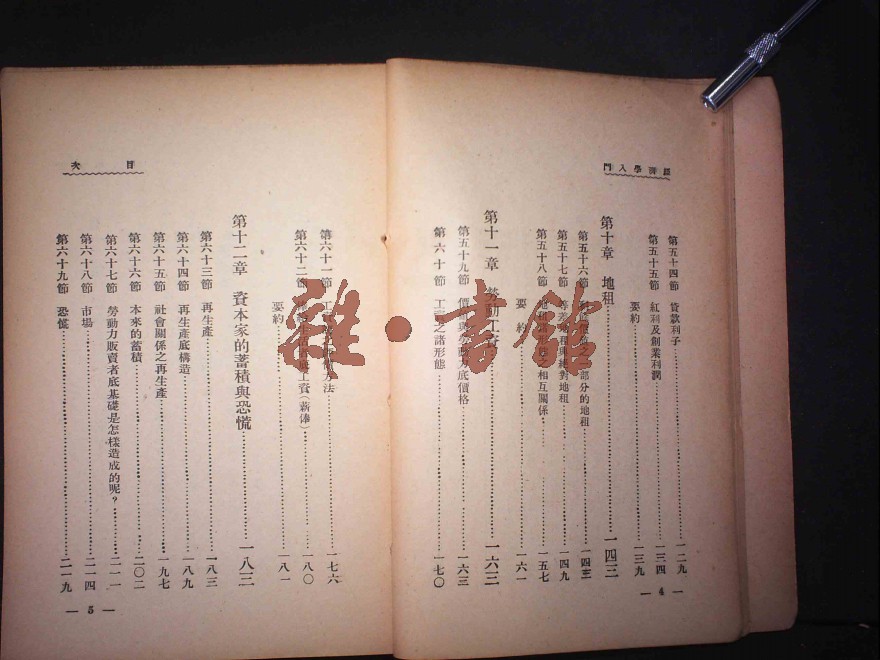 經濟學入門
第五十四節 貸款利子 一二九
第五十五節 紅利及創業利潤 一三四
要約 一三九
第十章 地租 一四三
第五十六節 部分的地租 一四三
第五十七節 等差地租與絕對地租 一四九
第五十八節 相互關係 一五七
要約 一六一
第十一章 勞動工資 一六三
第五十九節 價值與勞動力底價格 一六三
第六十節 工資之諸形態 一七〇
— 4 —
目次
第六十一節 方法 一七六
第六十二節 工資(薪俸) 一八〇
要約 一八一
第十二章 資本家的蓄積與恐慌 一八三
第六十三節 再生產 一八三
第六十四節 再生產底構造 一八九
第六十五節 社會關係之再生產 一九七
第六十六節 本來的蓄積 二〇二
第六十七節 勞動力販賣者底基礎是怎樣造成的呢? 二一一
第六十八節 市場 二一四
第六十九節 恐慌 二一九
— 5 —
雜·書館